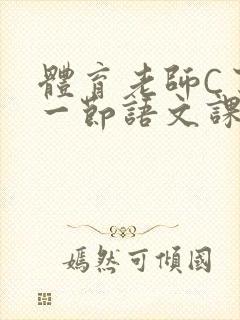 體育老師C
一節語文課
嫣然可傾國